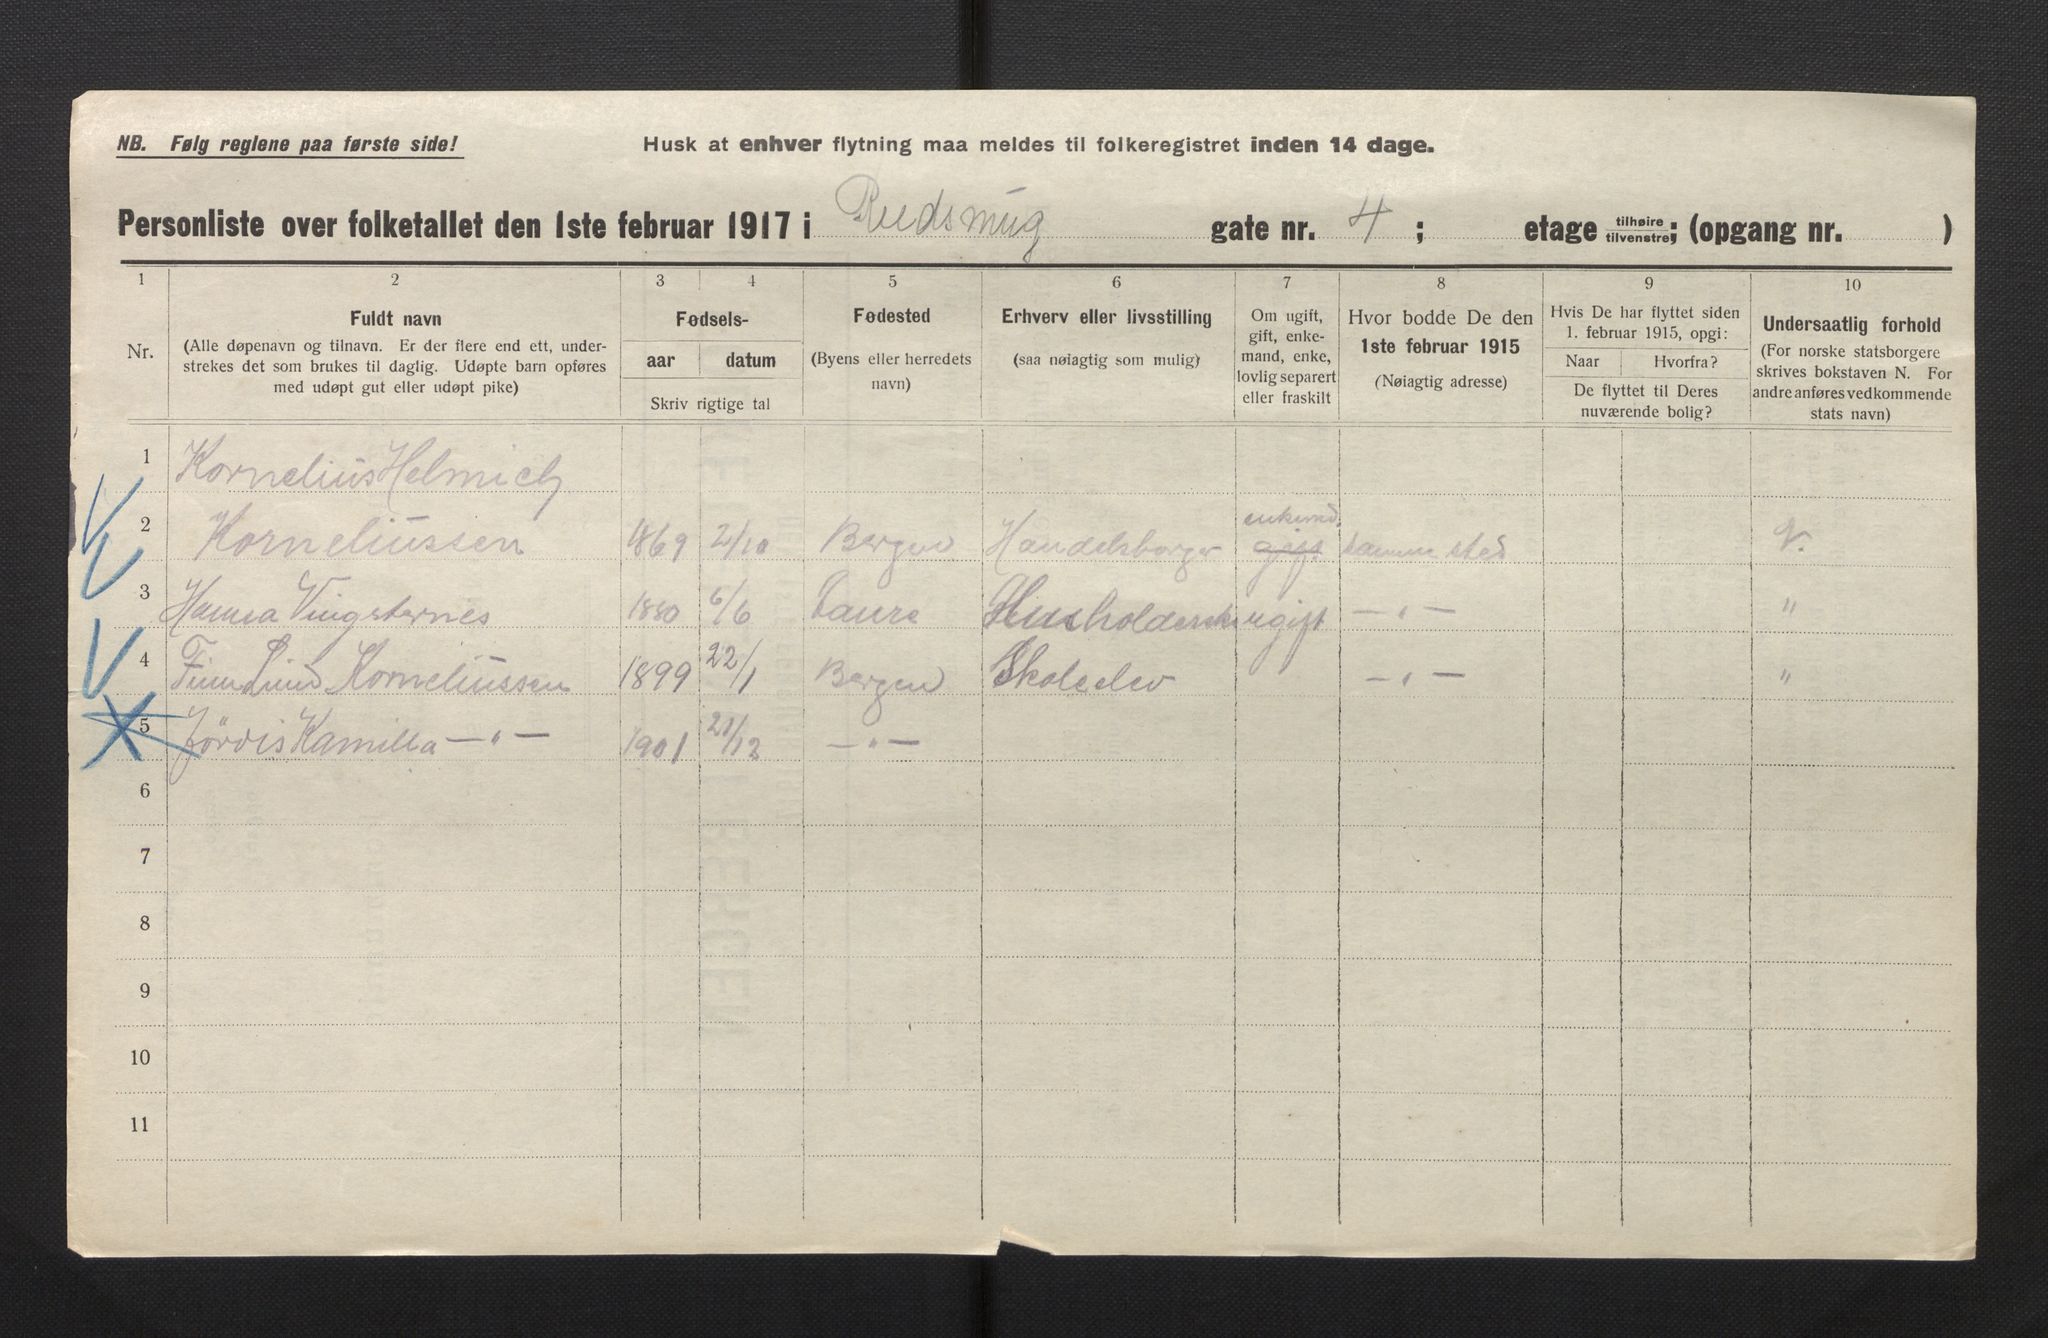 NB. Følg reglene paa første side!
Husk at enhver flytning maa meldes til folkeregistret inden 14 dage.
Personliste over folketallet den 1ste februar 1917 i Rudsmug gate nr. 4 ; etage tilhøire tilvenstre; (opgang nr. )
1 2 3 4 5 6 7 8 9 10
Nr.
Fuldt navn
(Alle døpenavn og tilnavn. Er der flere end ett, under-
strekes det som brukes til daglig. Udøpte barn opføres
med udøpt gut eller udøpt pike)
Fødsels-
aar datum
Skriv rigtige tal
Fødested
(Byens eller herredets
navn)
Erhverv eller livsstilling
(saa nøiagtig som mulig)
Om ugift,
gift, enke-
mand, enke,
lovlig separert
eller fraskilt
Hvor bodde De den
1ste februar 1915
(Nøiagtig adresse)
Hvis De har flyttet siden
1. februar 1915, opgi:
Naar Hvorfra?
De flyttet til Deres
nuværende bolig?
Undersaatlig forhold
(For norske statsborgere
skrives bokstaven N. For
andre anføres vedkommende
stats navn)
1 Kornelius Helmich
enkemd.
2 Korneliussen 1869 2/10 Bergen Handelsborger gift samme sted N.
3 Hansa Vingsternes 1880 6/6 Husholderske ugift — „ — "
4 Finn Lund Korneliussen 1899 22/1 Bergen Skoleelev — „ — "
5 Hjördis Kamilla — „ — 1901 21/12 — „ —
6
7
8
9
10
11